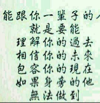 能跟你一輩子的人
就是要能
理解你的過去
相信你的未來
包容你的現在
如果身旁的他
無法做到